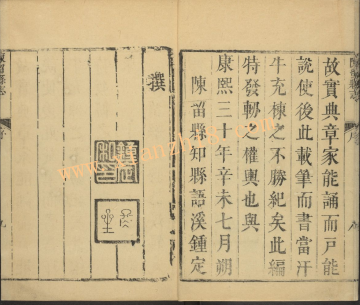 故實典章家能誦而戶能
說使後此載筆而書當汗
牛充棟之不勝紀矣此編
特發軔之權輿也與
康熙三十年辛未七月朔
陳留縣知縣語溪鍾定
撰